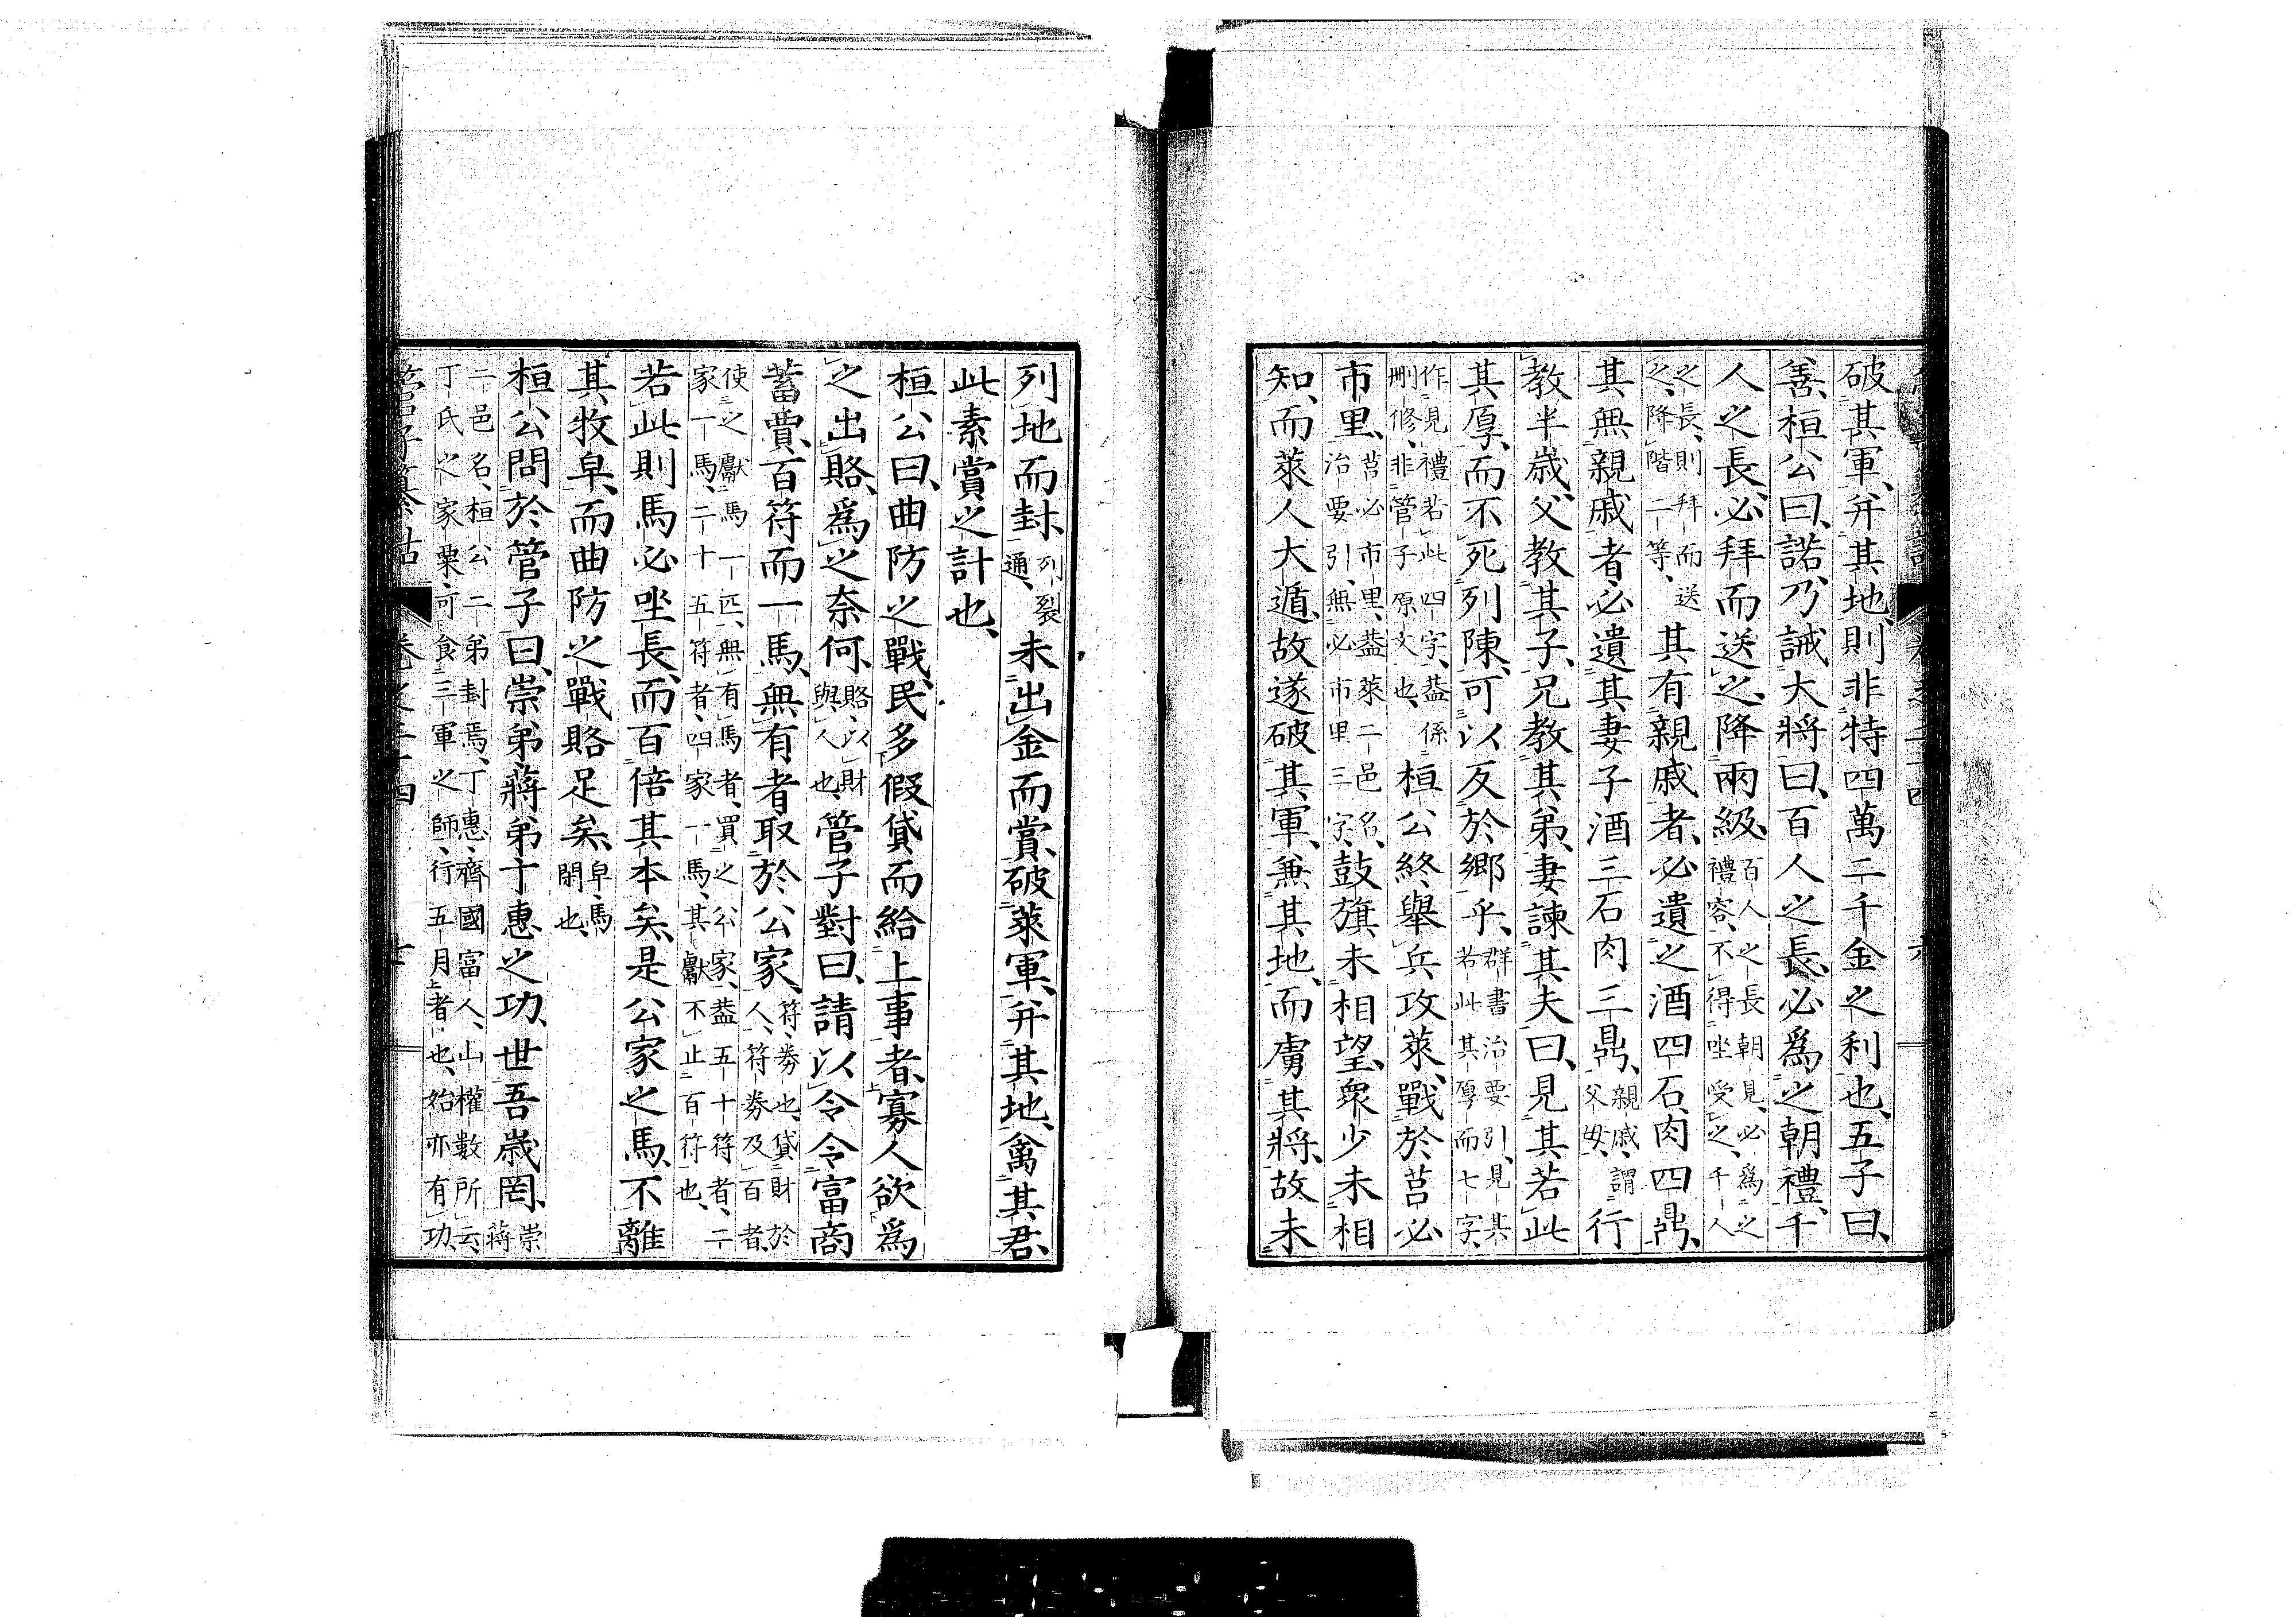 破其軍、幷其地、則非特四萬二千金之利也、五子曰、
善、桓公曰、諾、乃誡大將曰、百人之長、必爲之朝禮、千
人之長、必拜而送之、降兩級、百人之長朝見、必爲之禮容、不得坐受之、千人
之長、則拜而送之、降階二等、其有親戚者、必遺之酒四石肉四鼎、
其無親戚者、必遺其妻子酒三石肉三鼎、親戚、謂父母、行
教半歲、父教其子、兄教其弟、妻諫其夫曰、見其若此
其厚、而不死列陳、可以反於鄉乎、群書治要引、見其若此其厚而七字、
作見禮若此四字、蓋係刪修、非管子原文也、桓公終舉兵攻萊、戰於莒必
市里、莒必市里、蓋萊二邑名、治要引、無必市里三字、鼓旗未相望、衆少未相
知、而萊人大遁、故遂破其軍、兼其地、而虜其將、故未
列地而封、列裂通、未出金而賞、破萊軍、幷其地、禽其君、
此素賞之計也、
桓公曰、曲防之戰、民多假貸而給上事者、寡人欲爲
之出賂、爲之奈何、賂、以財與人也、管子對曰、請以令令富商
蓄賈、百符而一馬、無有者取於公家、符、券也、貸財於人、符券及百者、
使之獻馬一匹、無有馬者、買之公家、蓋五十符者、二家一馬、二十五符者、四家一馬、其獻不止百符也、
若此則馬必坐長、而百倍其本矣、是公家之馬、不離
其牧皁、而曲防之戰賂足矣、皁、馬閑也、
桓公問於管子曰、崇弟蔣弟丁惠之功、世吾歲罔、崇蔣
二邑名、桓公二弟封焉、丁惠、齊國富人、山權數所云、丁氏之家粟、可食三軍之師、行五月者也、始亦有功、
管子纂詁 卷之二十四